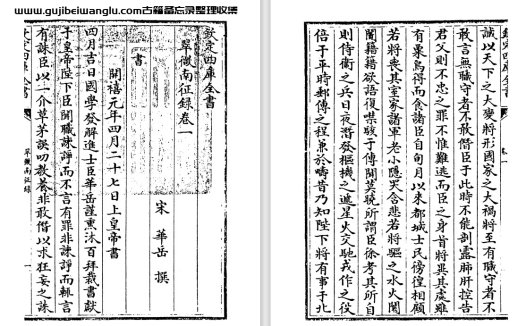 www.gujibeiwanglu.com古籍备忘录整理收集
欽定四庫全書
翠微南征録卷一
宋 華岳 撰
書
開禧元年四月二十七日上皇帝書
四月吉日國學發解進士臣華岳謹熏沐百拜裁書獻
于皇帝陛下臣聞職諫諍而不言有罪非諫諍而輒言
有誅臣以一介草茅誤叨教養非敢僭以求狂妄之誅
欽定四庫全書
翠微南征録
一
欽定四庫全書
誠以天下之大變將形國家之大禍將至有職守者不
敢言無職守者不敢僭臣于此時不能剖露肺肝控告
君父則不忠之罪不惟難逃而臣之身首將異其處雖
有粟烏得而食諸臣自旬月以來都城士民徬徨相顧
若將喪其室家諸軍老小隱哭含悲若將驅之水火闤
闠籍籍欲語復噤駭于傳聞莫曉所謂臣徐考其所自
則侍衛之兵日夜潛發樞機之遞星火交馳戎作之役
倍于平時郵傳之程兼於疇昔乃知陛下將有事于北